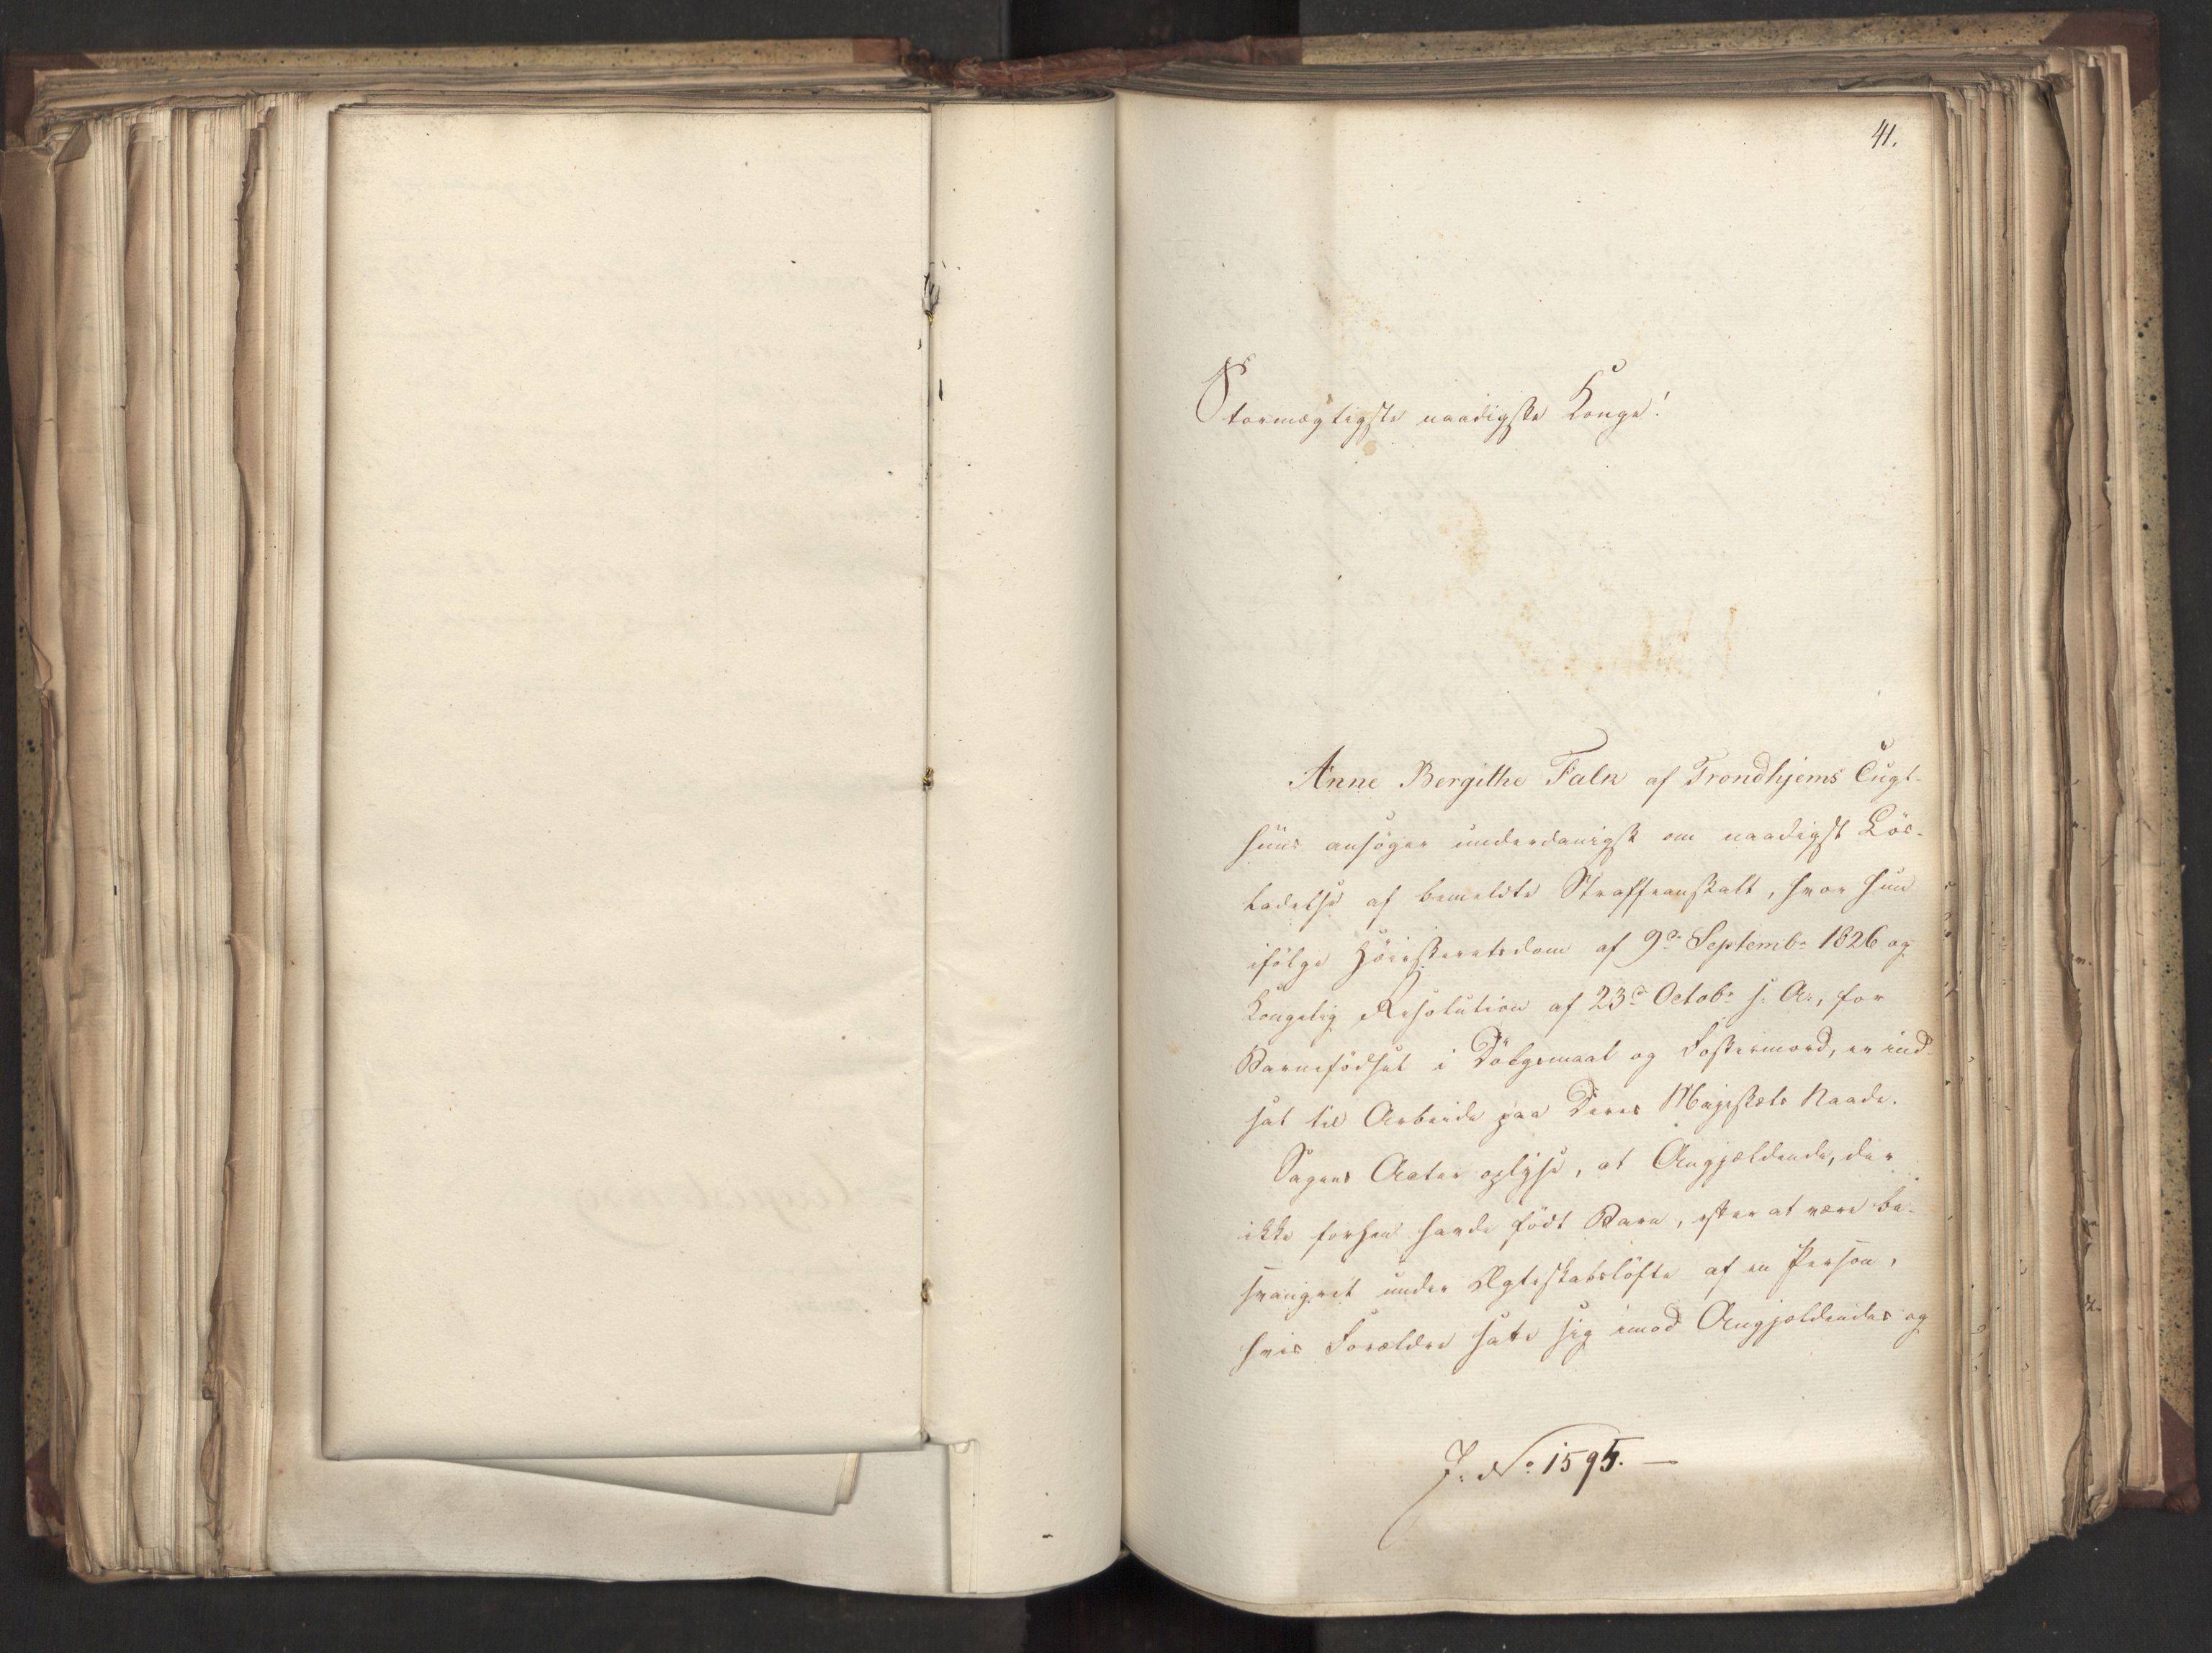 41.
Stormægtigste naadigste Konge!
Anne Bergithe Falk af Trondhjems Tugt-
huus ansøger underdanigst om naadigst Lös-
ladelse af bemeldte Straffeanstalt, hvor hun
ifölge Höiesteretsdom af 9de Septembr 1826 og
Kongelig Resolution af 23de Octobr s. A., for
Barnefödsel i Dölgsmaal og Fostermord, er ind-
sat til Arbeide paa Deres Majestæts Naade.
Sagens Acter oplyse, at Angjældende, der
ikke forhen havde födt Barn, efter at være be-
svangret under Ægteskabslöfte af en Person,
hvis Forældre satte sig imod Angjældendes og
J: No: 1595. —